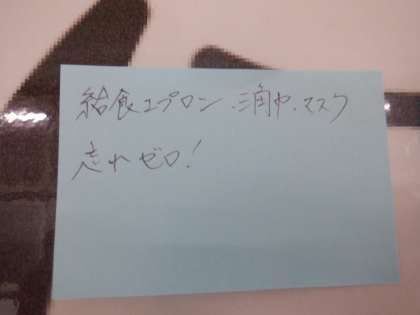 給食エプロン、三角巾、マスク
忘れゼロ!